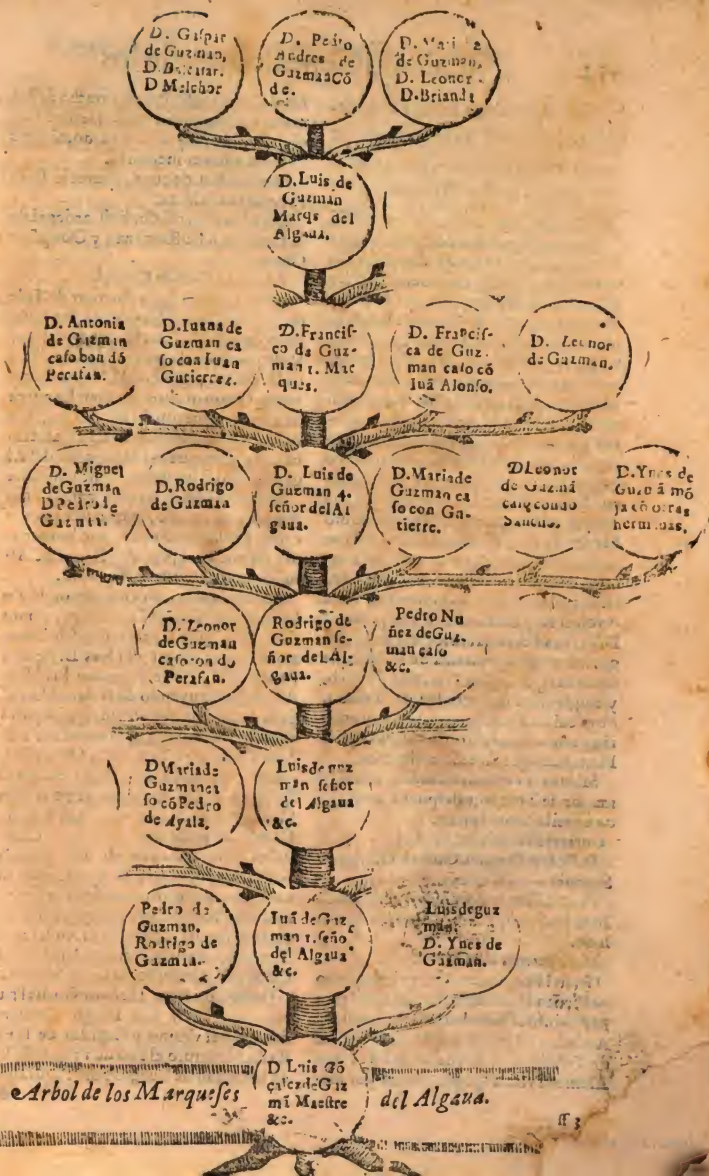 D. Gaspar
de Guzman,
D. Baltatar.
D Melchor
D. Pedro
Andres de
GuzmanCõ
de.
D. Mari a
de Guzman,
D. Leonor
D. Brianda
D. Luis de
Guzman
Marqs del
Algaua.
D. Antonia
de Guzman
caso bon dõ
Perafan.
D. Iuana de
Guzman ca
so con Iuan
Gutierrez.
D. Francis-
co de Guz-
man 1. Mar
ques.
D. Francis-
ca de Guz.
man caso cõ
Iuã Alonso.
D. Leonor
de Guzman.
D. Miguel
de Guzman
D Pedro de
Guzman.
D. Rodrigo
de Guzman
D. Luis de
Guzman 4.
señor del Al
gaua.
D. Maria de
Guzman ca
so con Gu-
tierre.
D Leonor
de Guzmã
Sancho.
D. Ynes de
Guzmã mõ
ja cõ otras
hermanas.
D. Leonor
de Guzman
caso con dõ
Perafan.
Rodrigo de
Guzman se-
ñor del Al-
gaua.
Pedro Nu
ñez de Guz.
man caso
&c.
D Maria de
Guzman ca
so cõ Pedro
de Ayala.
Luis de guz
man señor
del Algaua
&c.
Pedro de
Guzman.
Rodrigo de
Guzman.
Iuã de Guz
man 1. seño
del Algaua
&c.
Luis de guz
man.
D. Ynes de
Guzman.
D Luis Gõ
çalez de Guz
mã Maestre
&c.
Arbol de los Marqueses del Algaua.
¶¶ 3